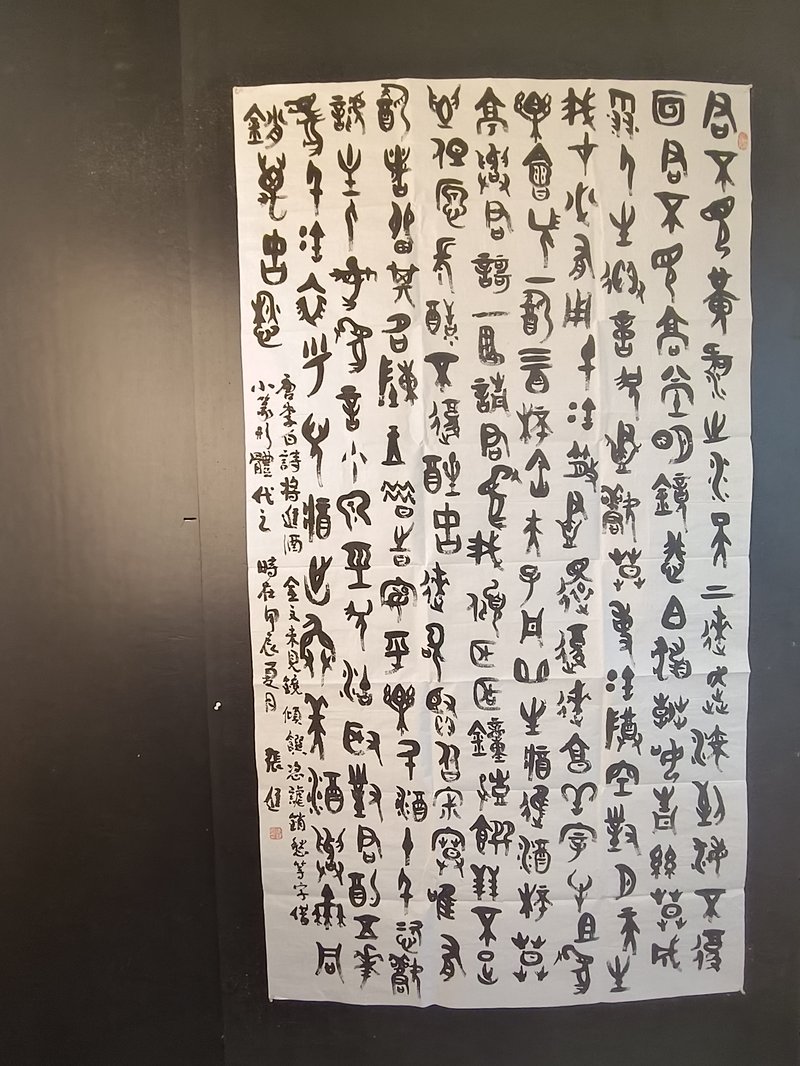 君不見黃河之水天上來奔流到海不復
回君不見高堂明鏡悲白髮朝如青絲莫成
雪人生得意須盡歡莫使金尊空對月天生
我才必有用千金散盡還復來烹羊宰牛且為
樂會須一飲三百杯岑夫子丹丘生將進酒杯莫
停與君歌一曲請君為我傾耳聽鐘鼓饌玉不足
貴但願長醉不復醒古來聖賢皆寂寞唯有
飲者留其名陳王昔時宴平樂斗酒十千恣歡
謔主人何為言少錢徑須沽取對君酌五花
馬千金裘呼兒將出換美酒與爾同
銷萬古愁
唐李白詩將進酒 金文未見鏡傾饌恣謔銷愁等字借
小篆形體代之 時在甲辰夏月 張進